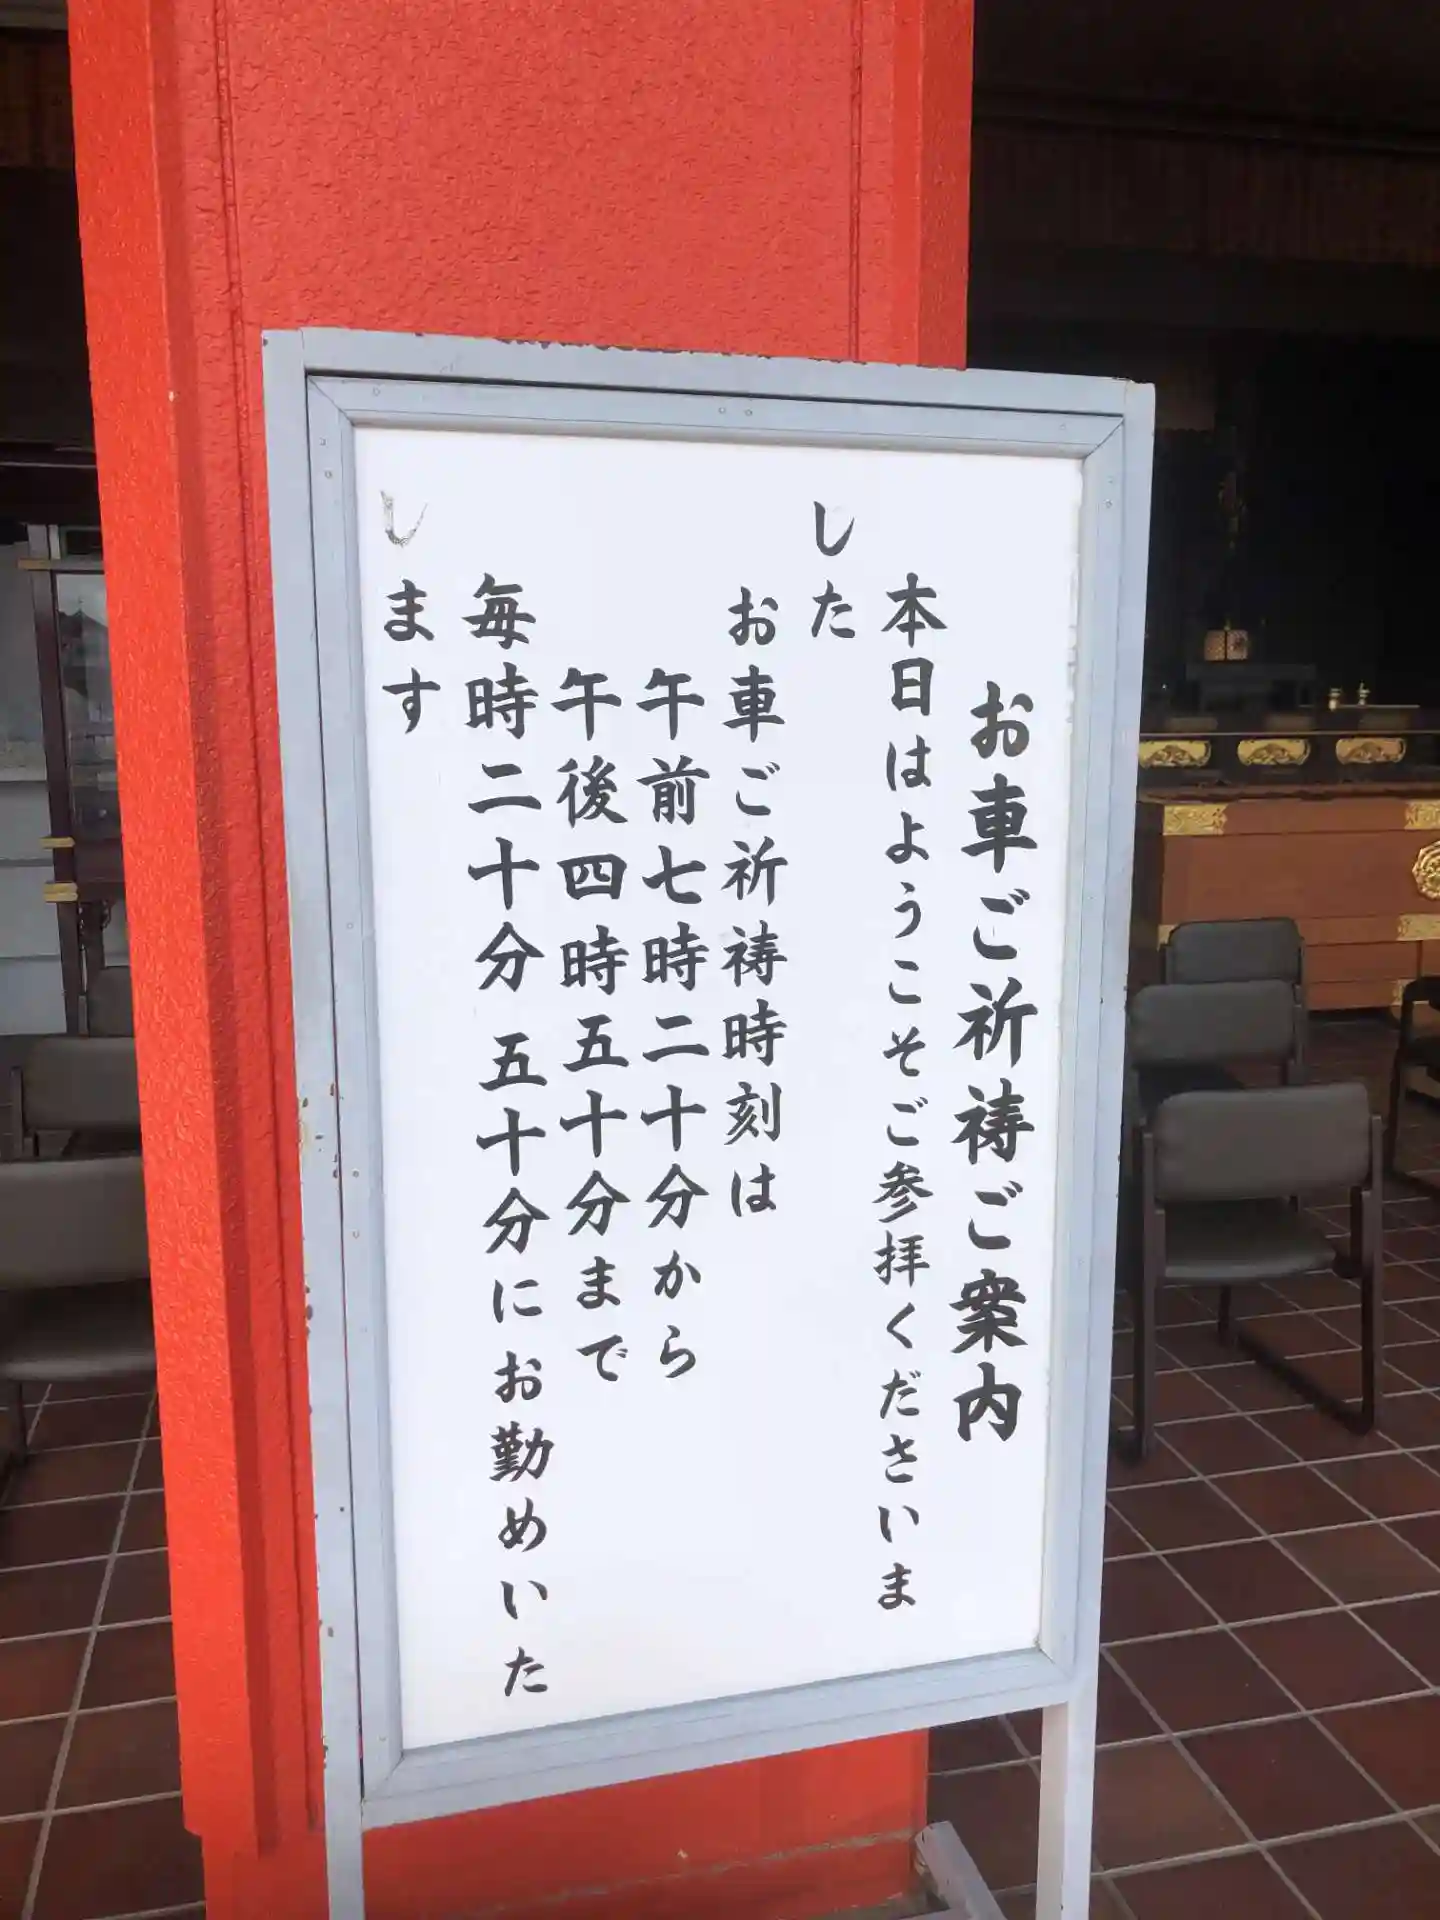 お車ご祈祷ご案内
本日はようこそご参拝くださいま
した
お車ご祈祷時刻は
午前七時二十分から
午後四時五十分まで
毎時二十分 五十分にお勤めいた
します